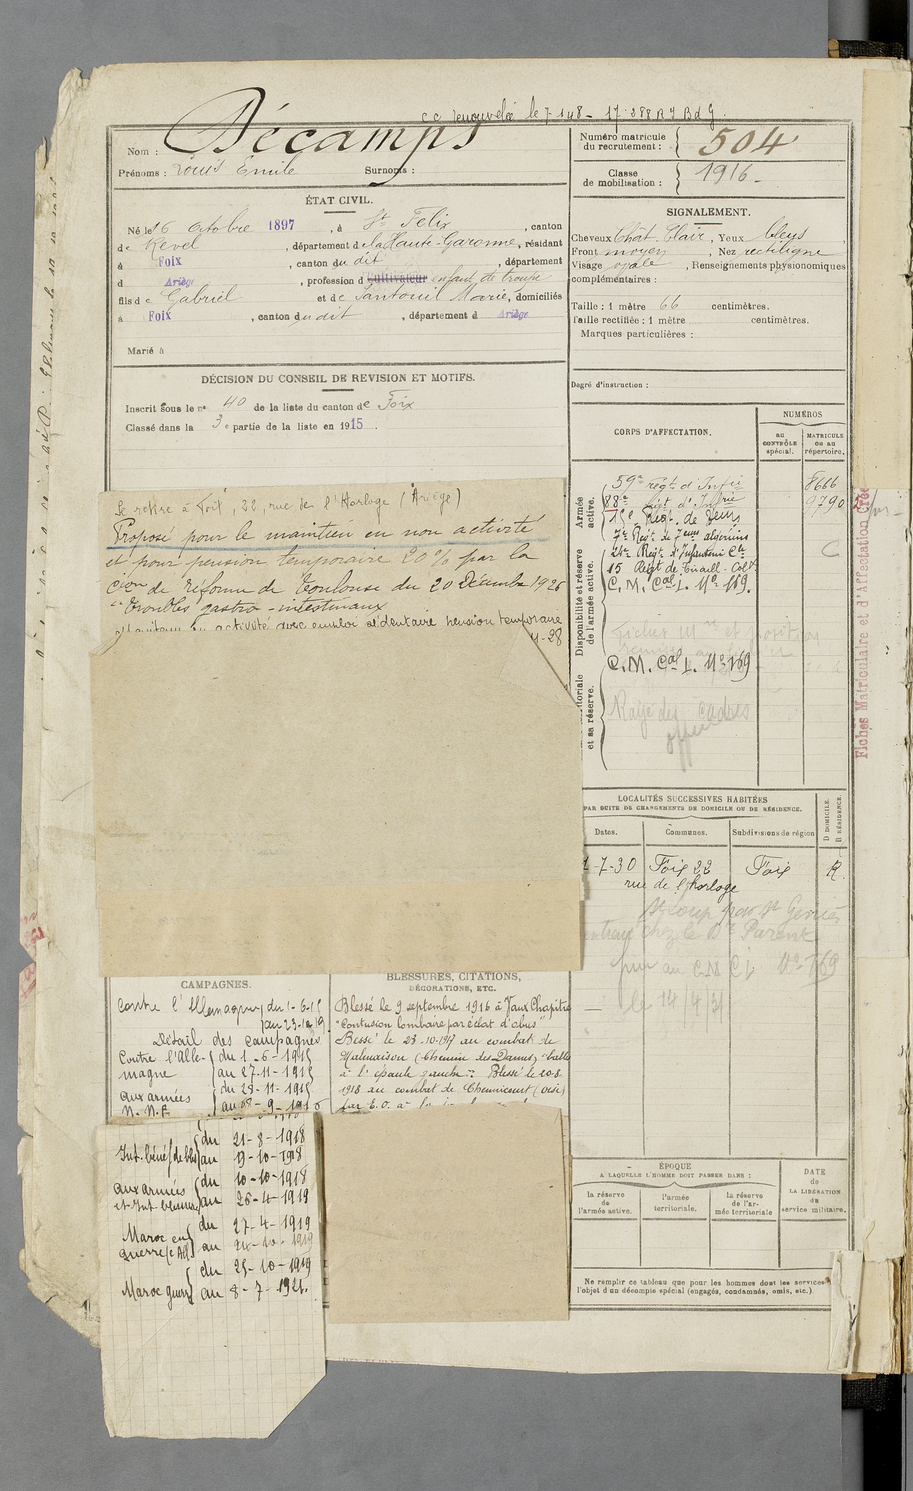 C.C. renouvelée le 7-1-48 - 17.288 R Y B d G.
Nom : Décamps
Prénoms : Louis Emile Surnoms :
Numéro matricule du recrutement : 504
Classe de mobilisation : 1916
ÉTAT CIVIL.
Né le 16 Octobre 1897, à St Felix, canton
de Revel, département de la Haute-Garonne, résidant
à Foix, canton du dit, département
d Ariège, profession d Cultivateur enfant de troupe
fils de Gabriel et de Santouil Marie, domiciliés
à Foix, canton du dit, département d Ariège
Marié à
SIGNALEMENT.
Cheveux Chât. Clair, Yeux bleus,
Front moyen, Nez rectiligne
Visage ovale, Renseignements physionomiques
complémentaires :
Taille : 1 mètre 66 centimètres.
Taille rectifiée : 1 mètre centimètres.
Marques particulières :
DÉCISION DU CONSEIL DE REVISION ET MOTIFS.
Inscrit sous le no 40 de la liste du canton de Foix
Classé dans la 3e partie de la liste en 1915.
Degré d'instruction :
CORPS D'AFFECTATION.
NUMÉROS
au CONTRÔLE spécial.
MATRICULE ou au répertoire.
Armée active.
59e régt d'Infie 8616
88e Régt d'Infrie 9790
15e Régt. de
7e Régt de algériens
24e Régt d'Infanterie Cle
15 Régt de Tiraill- Colx
Disponibilité et réserve de l'armée active.
C.M. Cal I. No 169.
C.M. Cal I. No 169
et sa réserve.
Rayé des cadres
Se retire à Foix, 22, rue de l'Horloge (Ariège)
Proposé pour le maintien en non activité
et pour pension temporaire 20% par la
Cion de réforme de Toulouse du 20 Décembre 1926
"Troubles gastro-intestinaux
activité avec emploi sédentaire pension temporaire
LOCALITÉS SUCCESSIVES HABITÉES
PAR SUITE DE CHANGEMENTS DE DOMICILE OU DE RÉSIDENCE.
Dates. Communes. Subdivisions de région D DOMICILE. R RÉSIDENCE.
1-7-30 Foix 22 Foix R.
rue de l'horloge
chez le Dr Parent
le 14/4/31
Fiches Matriculaire et d'Affectation
CAMPAGNES.
Contre l'Allemagne du 1-6-15
au 23-10-19.
Détail des campagnes
Contre l'Allemagne du 1-6-1915
au 27-11-1915
aux armées du 28-11-1915
N.-N.E au 08-9-1916
Int. béné(de bles) du 21-8-1918
au 19-10-1918
aux armées du 10-10-1918
et Int. blessure au 26-4-1919
Maroc en du 27-4-1919
guerre (c All) au 24-10-1919
du 25-10-1919
Maroc guerre au 8-7-1921.
BLESSURES, CITATIONS,
DÉCORATIONS, ETC.
Blessé le 9 septembre 1916 à Vaux Chapitre
"Contusion lombaire par éclat d'obus"
Blessé le 23-10-1917 au combat de
Malmaison (Chemin des Dames) "balle
à l'épaule gauche" Blessé le 20-8-
1918 au combat de (Oise)
par E.O. à la
ÉPOQUE
A LAQUELLE L'HOMME DOIT PASSER DANS :
la réserve de l'armée active.
l'armée territoriale.
la réserve de l'armée territoriale
DATE de LA LIBÉRATION du service militaire.
Ne remplir ce tableau que pour les hommes dont les services
l'objet d'un décompte spécial (engagés, condamnés, omis, etc.).